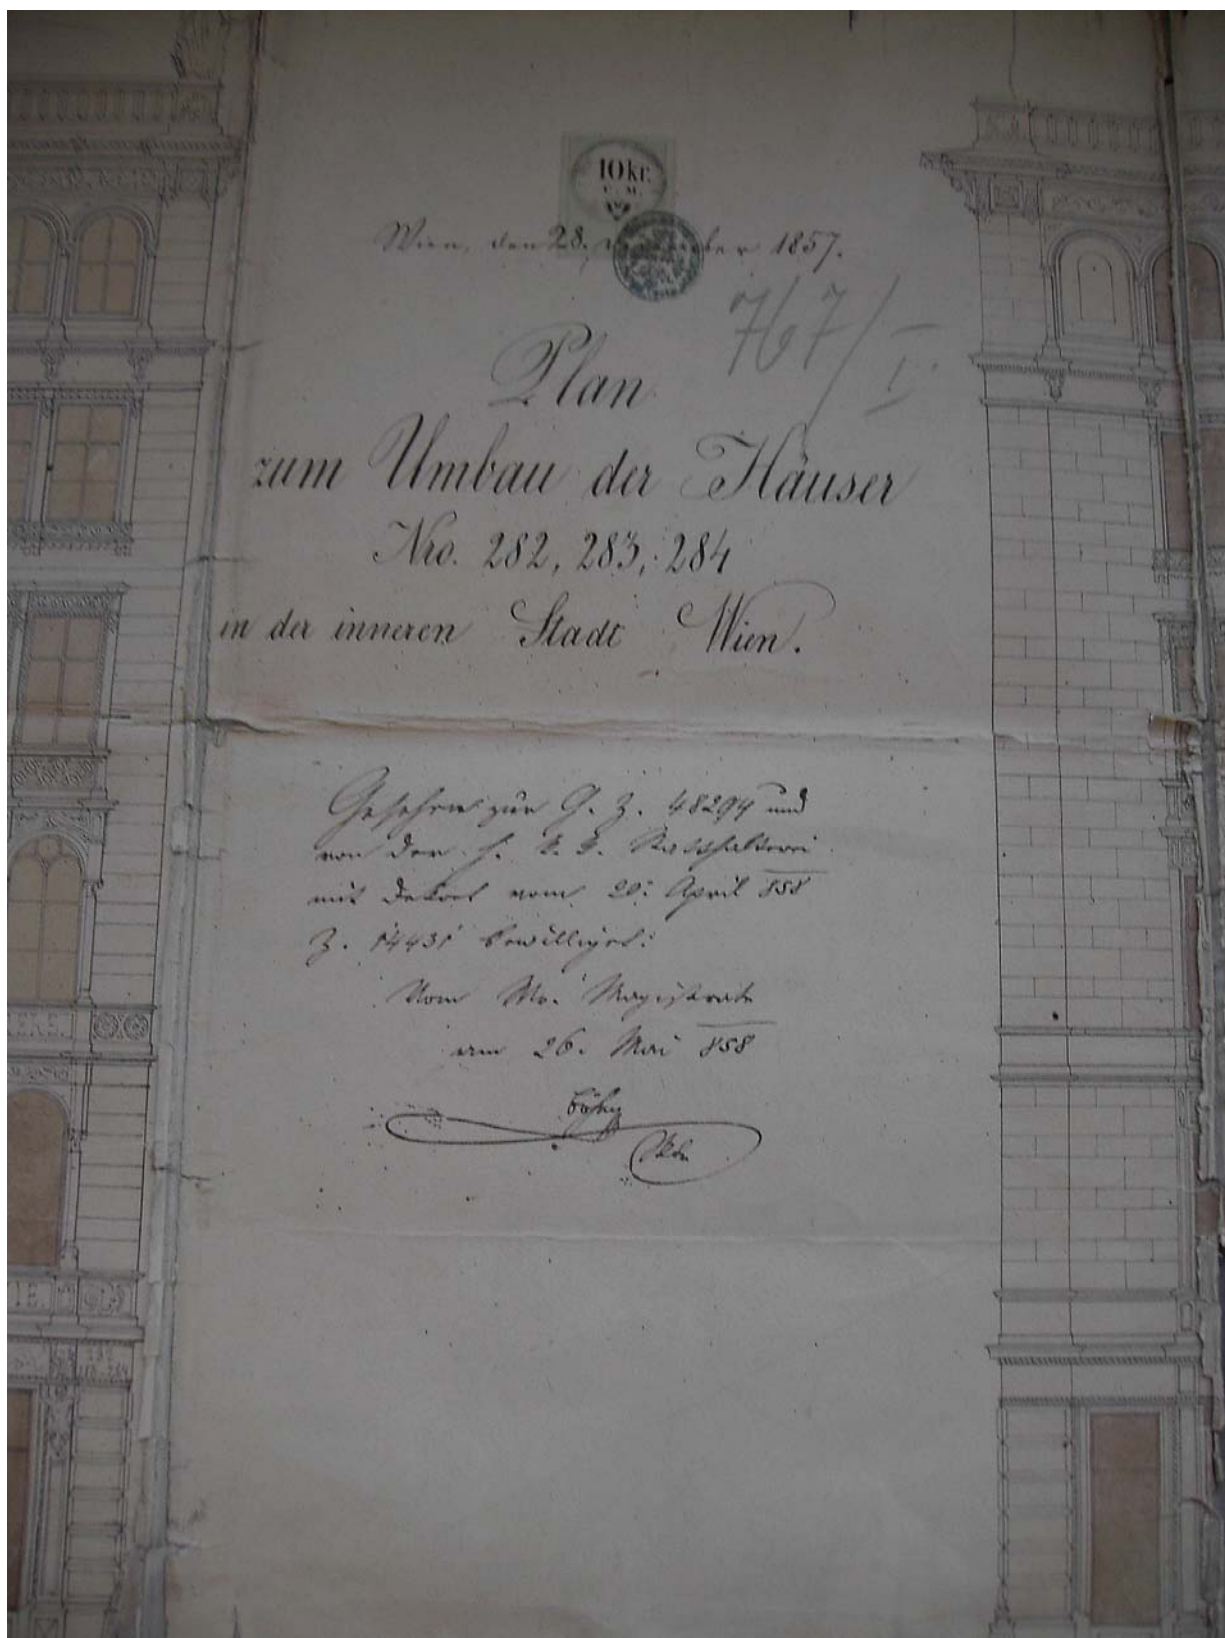 10 kr.
C. M.
Wien, den 28. 1857.
767/I.
Plan
zum Umbau der Häuser
Nro. 282, 283, 284
in der inneren Stadt Wien.
Gesehen zur G. Z. 48294 und
von der h. k. k. Statthalterei
mit Dekret vom 20. April 858
Z. 14431 bewilliget.
Vom Mag. Magistrate
am 26. Mai 858